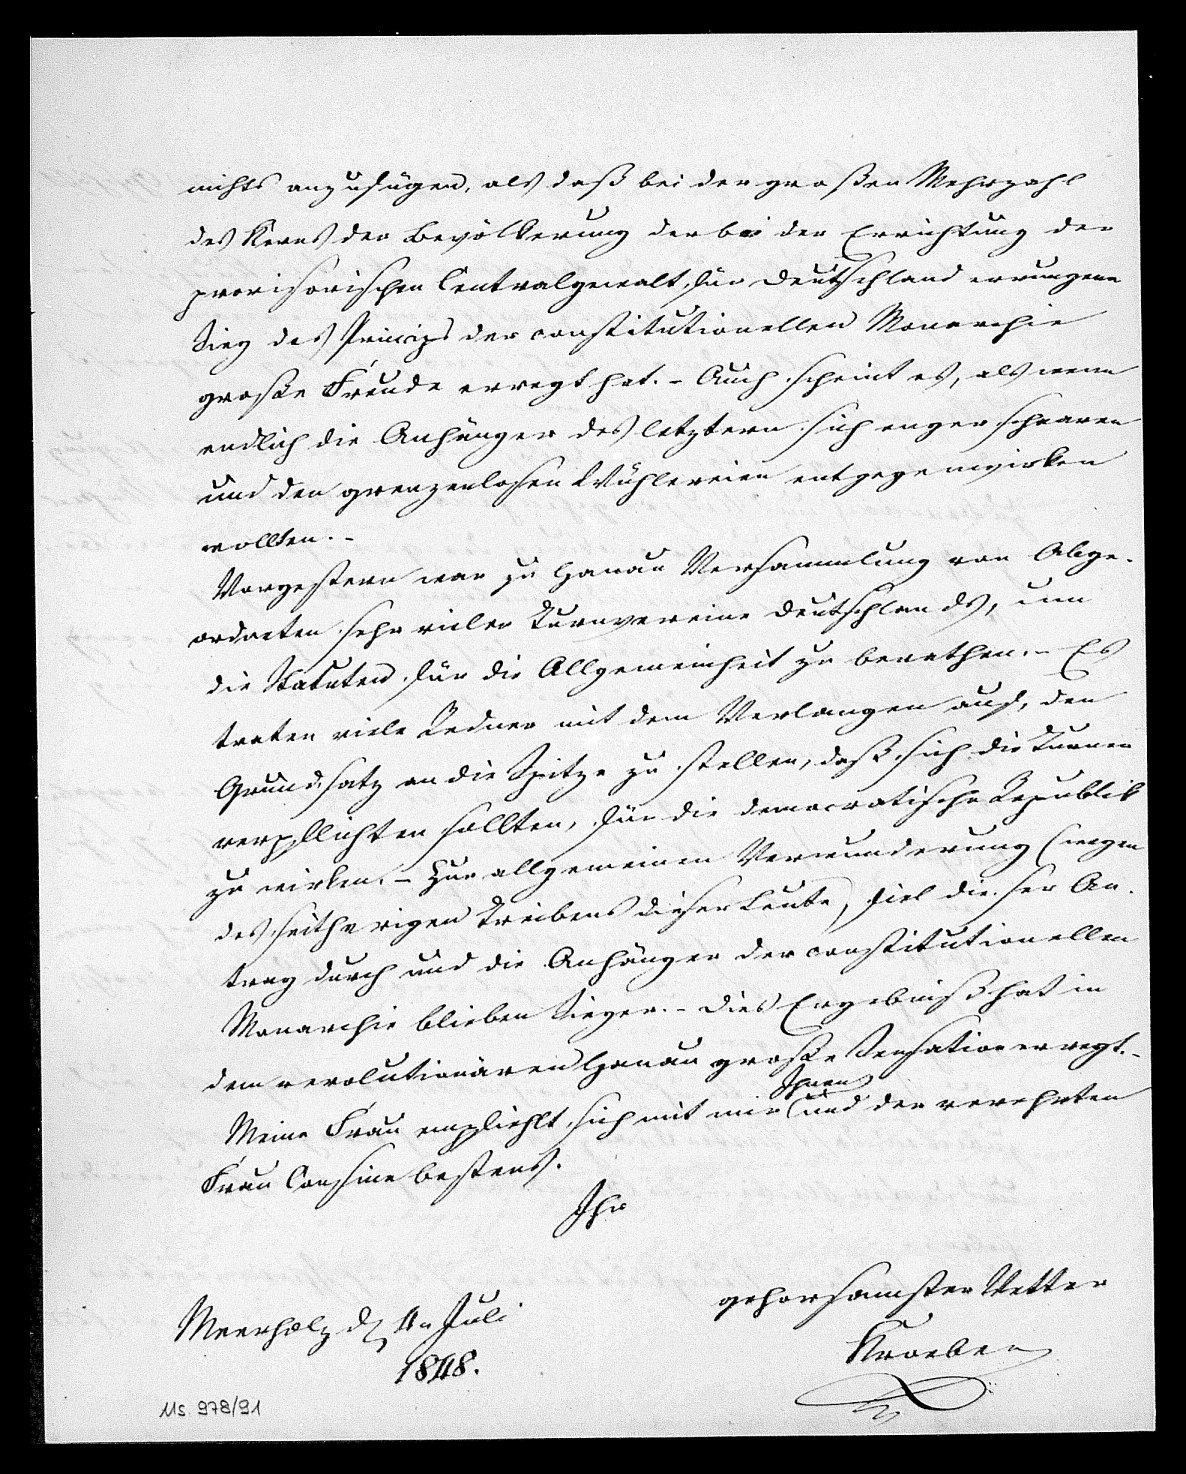 nichts anzufügen, als daß bei der großen Mehrzahl
des Kerns der Bevölkerung der bei der Errichtung der
provisorischen Centralgewalt für Deutschland errungene
Sieg des Princips der constitutionellen Monarchie
große Freude erregt hat. – Auch scheint es, als wenn
endlich die Anhänger des letztern sich enger schaaren
und den grenzenlosen Wühlereien entgegenwirken
wollten. –
Vorgestern war zu Hanau Versammlung von Abge-
ordneten sehr vieler Turnvereine Deutschlands, um
die Statuten für die Allgemeinheit zu berathen. – Es
traten viele Redner mit dem Verlangen auf, den
Grundsatz an die Spitze zu stellen, daß sich die Turner
verpflichten sollten, für die democratische Republik
zu wirken. – Zur allgemeinen Verwunderung (wegen
des seitherigen Treibens dieser Leute) fiel dieser An-
trag durch und die Anhänger der constitutionellen
Monarchie blieben Sieger. – Dies Ergebniß hat in
dem revolutionären Hanau große Sensation erregt. –
Meine Frau empfiehlt sich mit mir Ihnen und der verehrten
Frau Cousine bestens.
Ihr
gehorsamster Vetter
Kroeber
Meerholz d. 4n Juli
1848.
Ms 978/91